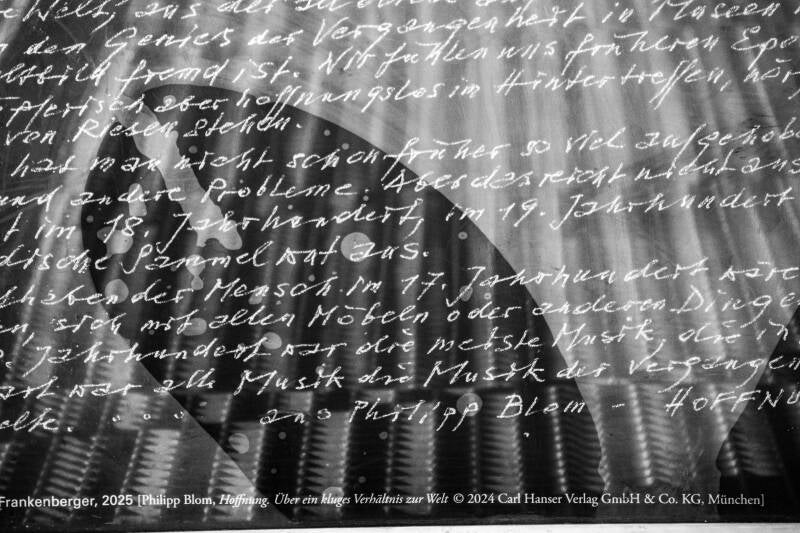 Welt, aus der
den Genies der Vergangenheit in Museen
fremd ist. Wir fühlen uns früheren Epo
aber hoffnungslos im Hintertreffen, hör
von Riesen stehen.
hat man nicht schon früher so viel aufgehobe
und andere Probleme. Aber das reicht nicht aus
im 18. Jahrhundert, im 19. Jahrhundert
dische Sammelwut aus.
habender Mensch im 17. Jahrhundert wäre
en, sich mit alten Möbeln oder anderen Dinge
. Jahrhundert war die meiste Musik, die in
art war alle Musik die Musik der Vergangen
alte. .... aus Philipp Blom - HOFFNU
Frankenberger, 2025 [Philipp Blom, Hoffnung. Über ein kluges Verhältnis zur Welt © 2024 Carl Hanser Verlag GmbH & Co. KG, München]